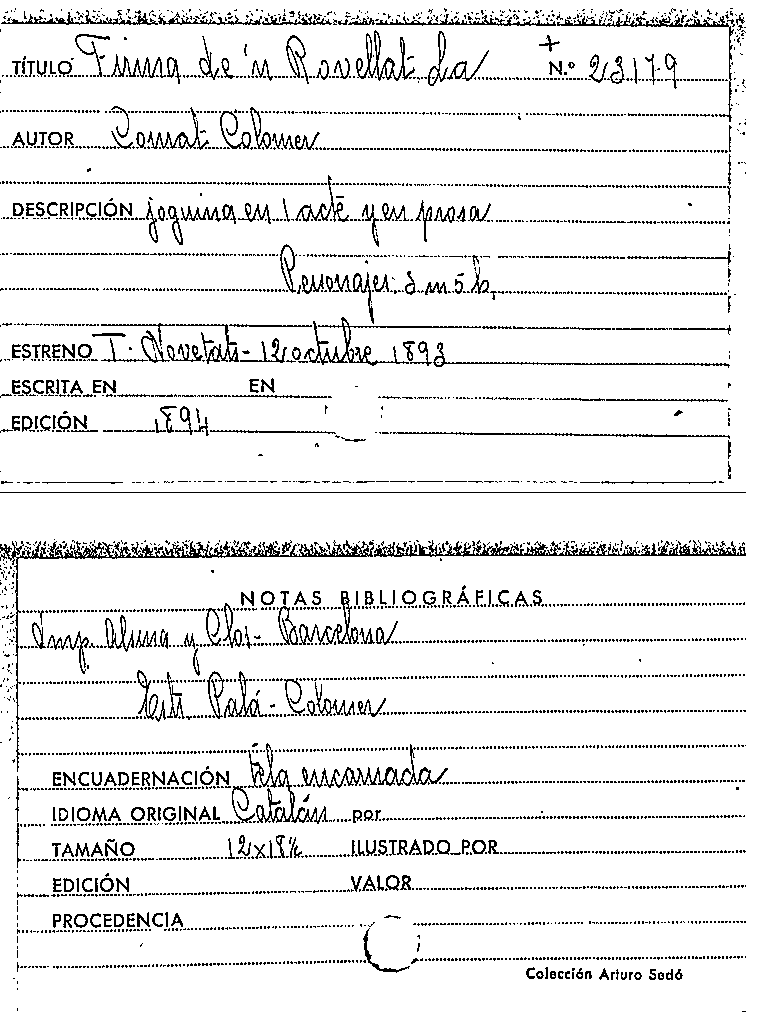 TÍTULO Firma de 'n Rovellat. La + N.º 23179
AUTOR Conrat Colomer
DESCRIPCIÓN joguina en 1 acte y en prosa
Personajes: 2 m 5 h.
ESTRENO T. Novetats - 12 octubre 1893
ESCRITA EN EN
EDICIÓN 1894
NOTAS BIBLIOGRÁFICAS
Imp. Aluna y Clos - Barcelona
Palá - Colomer
ENCUADERNACIÓN tela encarnada
IDIOMA ORIGINAL Catalán por
TAMAÑO 12x18½ ILUSTRADO POR
EDICIÓN VALOR
PROCEDENCIA
Colección Arturo Sedó